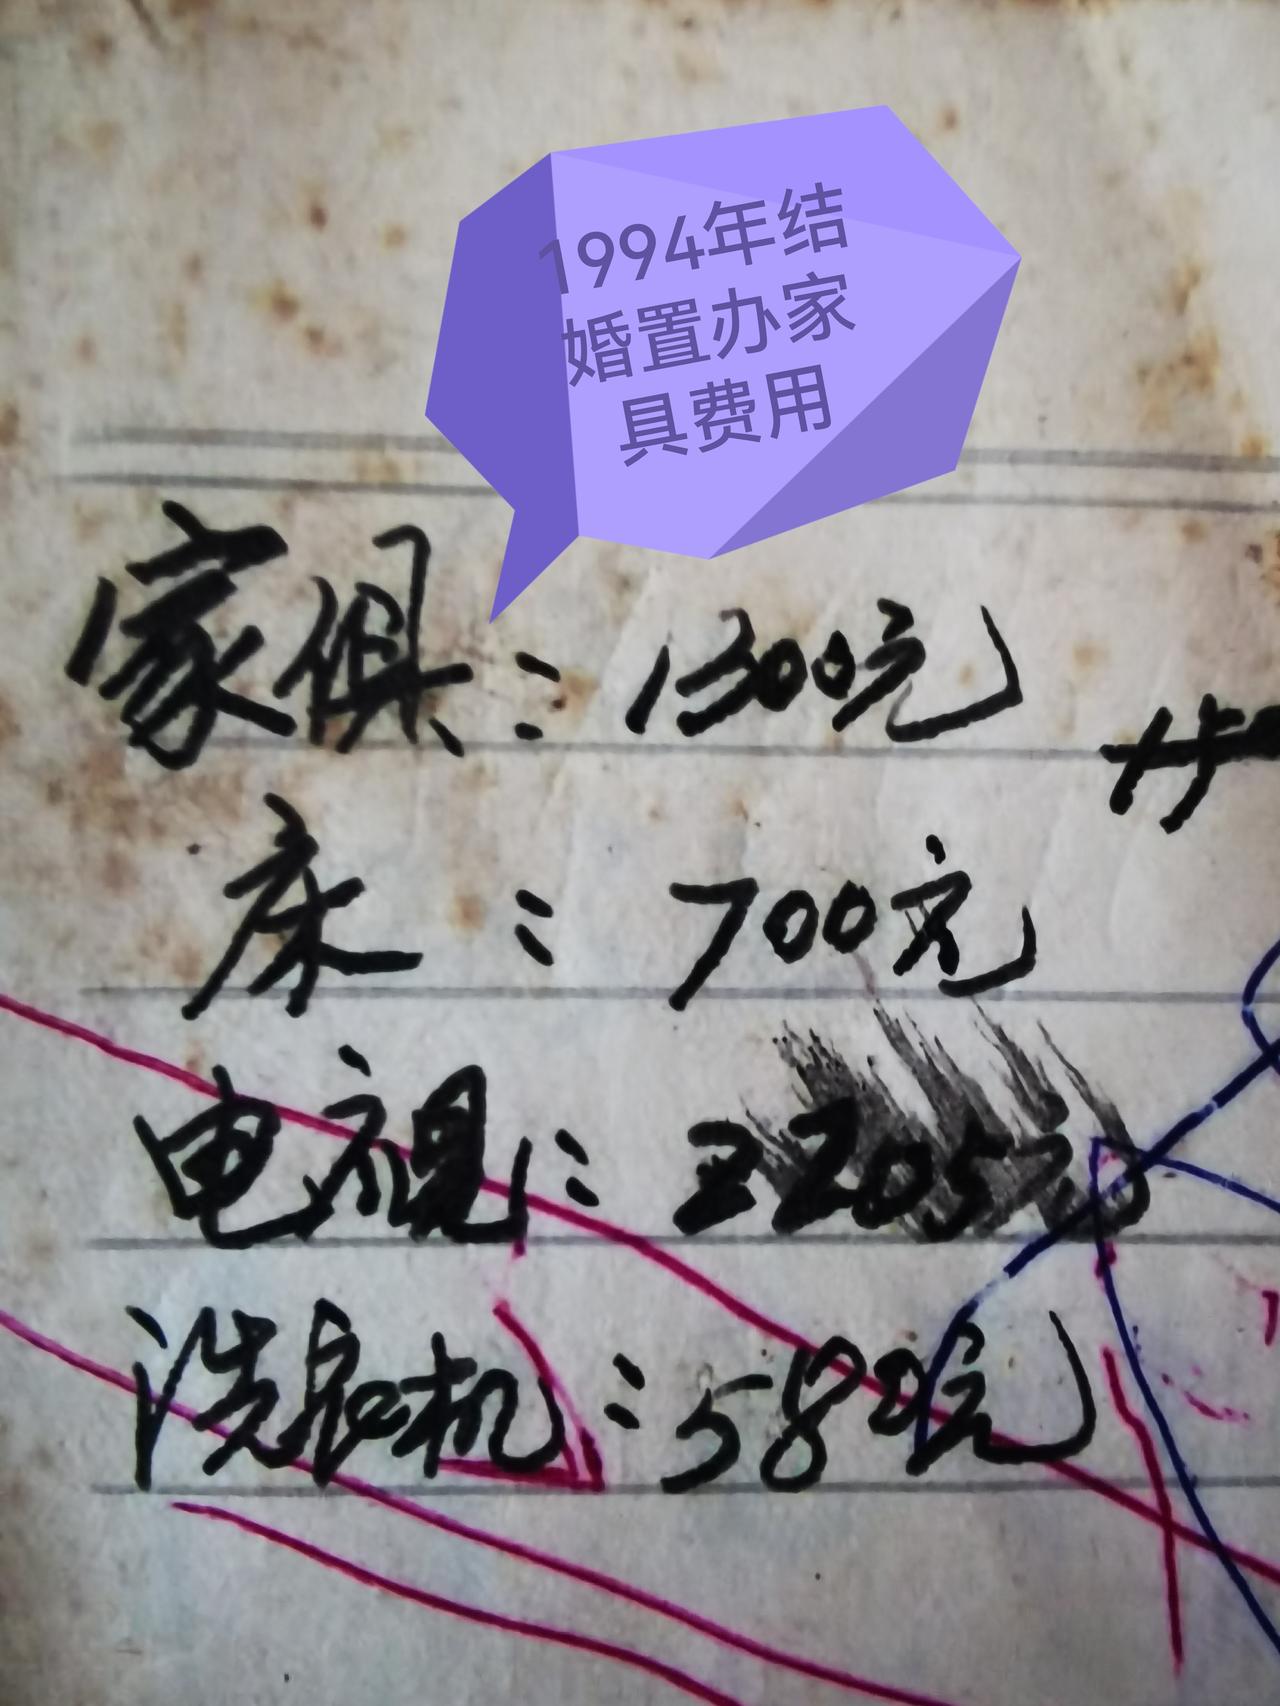 1994年结
婚置办家
具费用
家俱：1300元
床：700元
电视：2205元
洗衣机：582元